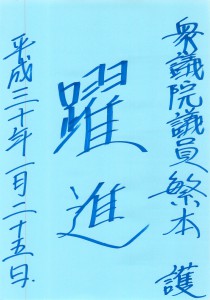 衆議院議員繁本護
躍進
平成三十年一月二十五日.